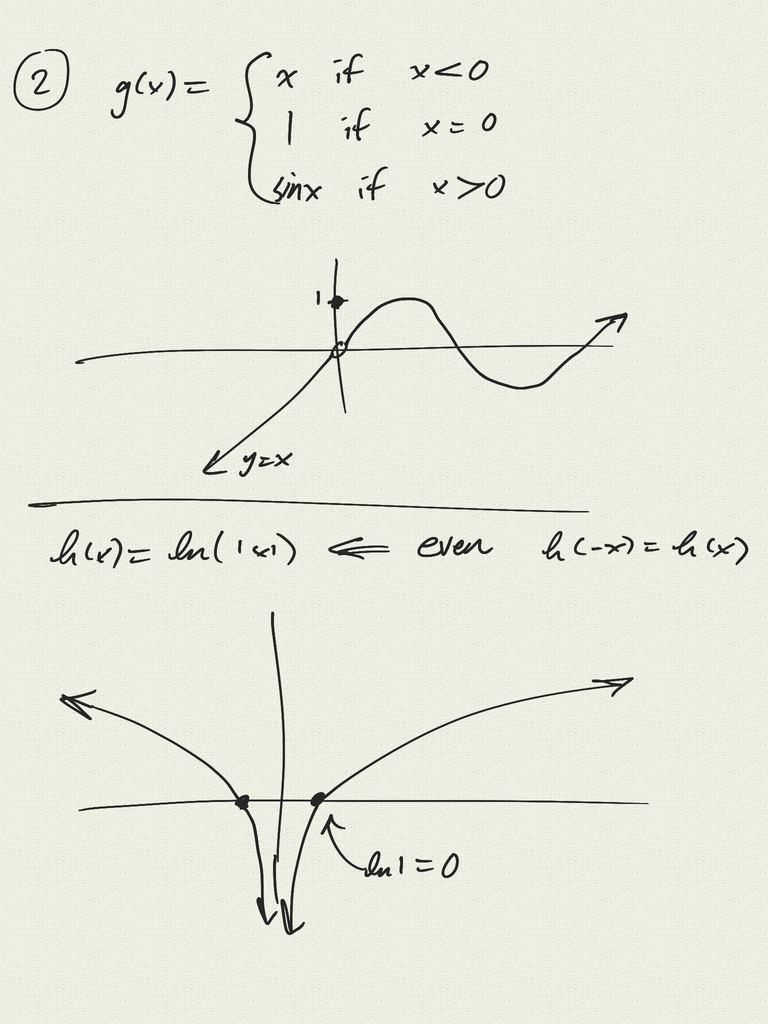 ② g(x) = { x if x < 0
1 if x = 0
sinx if x > 0
1
y = x
h(x) = ln(|x|) ⇐ even h(-x) = h(x)
ln 1 = 0